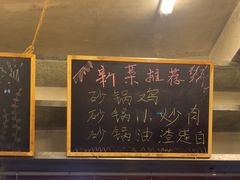 新菜推荐
砂锅鸡
砂锅小炒肉
砂锅油渣莲白